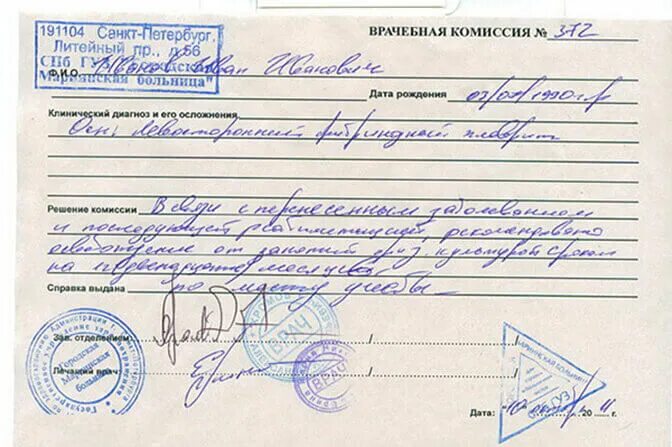 191104 Санкт-Петербург,
Литейный пр., д.56
СПб ГУЗ "Городская
Мариинская больница"
ВРАЧЕБНАЯ КОМИССИЯ № 372
Ф.И.О. Иванов Иван Иванович
Дата рождения 1990 г.р
Клинический диагноз и его осложнения
Осн: Левосторонний фибринозный плеврит
Решение комиссии В связи с перенесенным заболеванием
и последующей реабилитацией, рекомендовано
освобождение от занятий физ. культурой сроком
на месяцев
Справка выдана по месту учебы
Зав. отделением
ВРАЧ
Лечащий врач
ВРАЧ
Городская
Мариинская
больница
МАРИИНСКАЯ БОЛЬНИЦА
Дата: "10" 20 11 г.